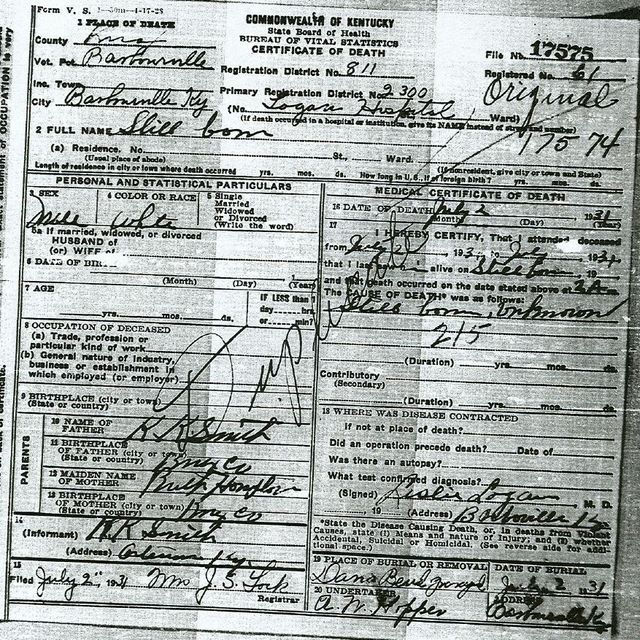 Form V. S.
COMMONWEALTH OF KENTUCKY
State Board of Health
BUREAU OF VITAL STATISTICS
CERTIFICATE OF DEATH
1 PLACE OF DEATH
County
File No. 17575
Vot. Pct. Barbourville
Registration District No. 811
Registered No. 61
Inc. Town
Primary Registration District No. 2300
Original
City Barbourville Ky
(No. Logan Hospital, Ward)
(If death occurred in a hospital or institution, give its NAME instead of street and number)
2 FULL NAME Still born
17574
(a) Residence. No. St., Ward.
(Usual place of abode) (If nonresident, give city or town and State)
Length of residence in city or town where death occurred yrs. mos. ds. How long in U. S., if of foreign birth? yrs. mos. ds.
PERSONAL AND STATISTICAL PARTICULARS
3 SEX
4 COLOR OR RACE
5 Single
Married
Widowed
or Divorced
(Write the word)
White
5a If married, widowed, or divorced
HUSBAND of
(or) WIFE of
6 DATE OF BIRTH
(Month) (Day) (Year)
7 AGE
yrs. mos. ds.
IF LESS than 1
day hrs.
or min?
8 OCCUPATION OF DECEASED
(a) Trade, profession or
particular kind of work
(b) General nature of industry,
business or establishment in
which employed (or employer)
9 BIRTHPLACE (city or town)
(State or country)
PARENTS
10 NAME OF
FATHER K K Smith
11 BIRTHPLACE
OF FATHER (city or town)
(State or country) Knox Co
12 MAIDEN NAME
OF MOTHER
13 BIRTHPLACE
OF MOTHER (city or town)
(State or country) Knox Co
14
(Informant) K K Smith
(Address)
15
Filed July 2" 1931 Wm J. S. Lock
Registrar
MEDICAL CERTIFICATE OF DEATH
16 DATE OF DEATH July 2 1931
(Month) (Day) (Year)
17
I HEREBY CERTIFY, That I attended deceased
from July 2 1931 to July 1931
that I last saw h alive on Stillborn, 19
and that death occurred on the date stated above at
The CAUSE OF DEATH* was as follows:
Still born, Unknown
215
(Duration) yrs. mos. ds.
Contributory
(Secondary)
(Duration) yrs. mos. ds.
18 WHERE WAS DISEASE CONTRACTED
if not at place of death?
Did an operation precede death? Date of
Was there an autopsy?
What test confirmed diagnosis?
(Signed) Leslie Logan M. D.
19 (Address) Barbourville Ky
*State the Disease Causing Death, or, in deaths from Violent
Causes, state (1) Means and nature of Injury; and (2) whether
Accidental, Suicidal or Homicidal. (See reverse side for addi-
tional space.)
19 PLACE OF BURIAL OR REMOVAL
DATE OF BURIAL
July 2 1931
20 UNDERTAKER
ADDRESS
A. W. Hopper
Barbourville Ky